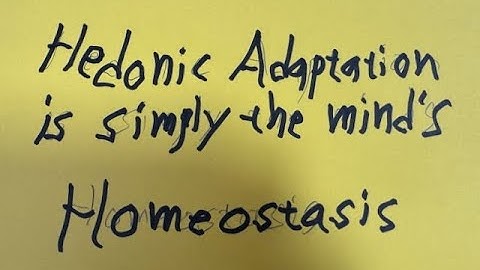 Hedonic Adaptation
is simply the mind's
Homeostasis